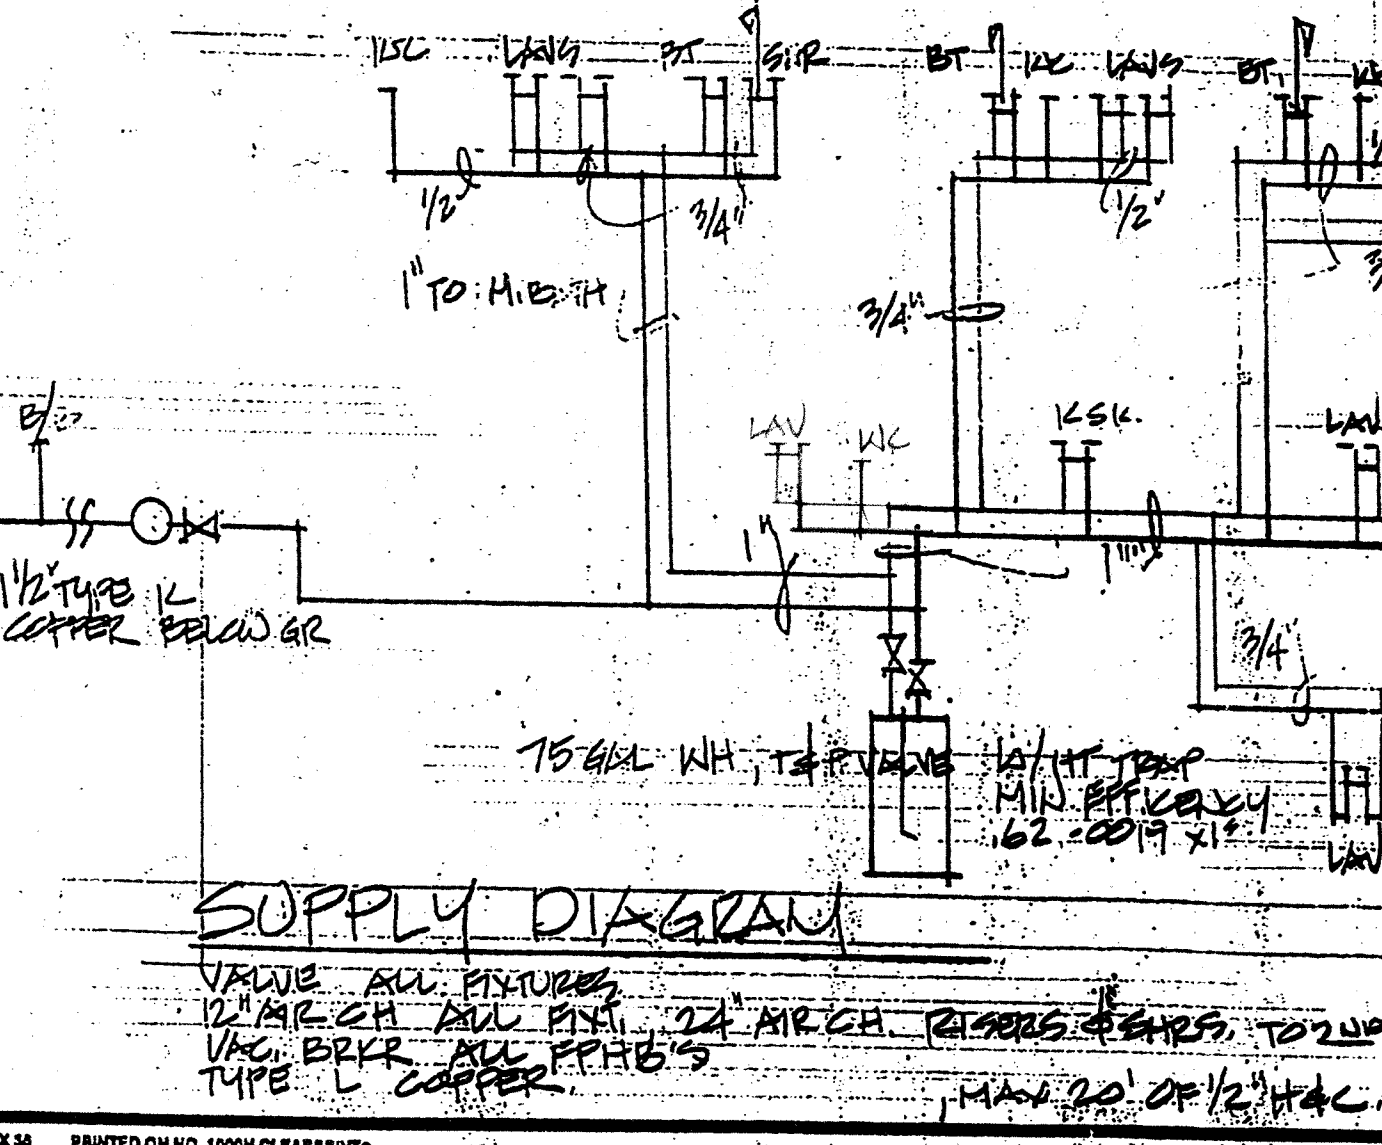 WC LAVS BT SHR BT WC LAVS BT
1/2" 3/4" 1/2"
1" TO M. BATH 3/4"
LAV WC K SK. LAV
1" 1"
1 1/2" TYPE K
COPPER BELOW GR
3/4"
75 GAL WH, T&P VALVE W/HT TRAP
MIN EFFICENCY
.62 -.0019 x
LAV
SUPPLY DIAGRAM
VALVE ALL FIXTURES
12" AIR CH ALL FIXT., 24" AIR CH. RISERS & SHRS. TO 2ND
VAC. BRKR ALL FPHB'S
TYPE L COPPER.
, MAX 20' OF 1/2" H&C.
PRINTED ON NO. 1000H CLEARPRINT